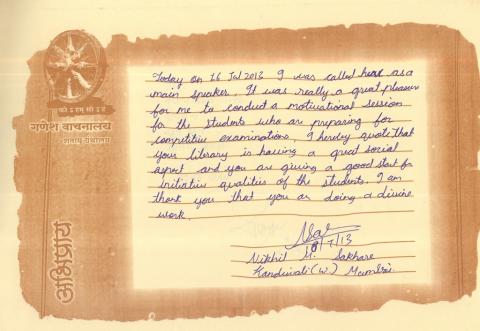 गणेश वाचनालय
अभिप्राय
Today on 16 Jul 2013 I was called here as a
main speaker. It was really a great pleasure
for me to conduct a motivational session
for the students who are preparing for
competitive examinations. I hereby quote that
your literary is having a great social
aspect and you are giving a good start for
initiative qualities of the students. I am
thank you that you are doing a divine
work.
/7/13
Nikhil M. Sakhare
Kandivali (W.) Mumbai.